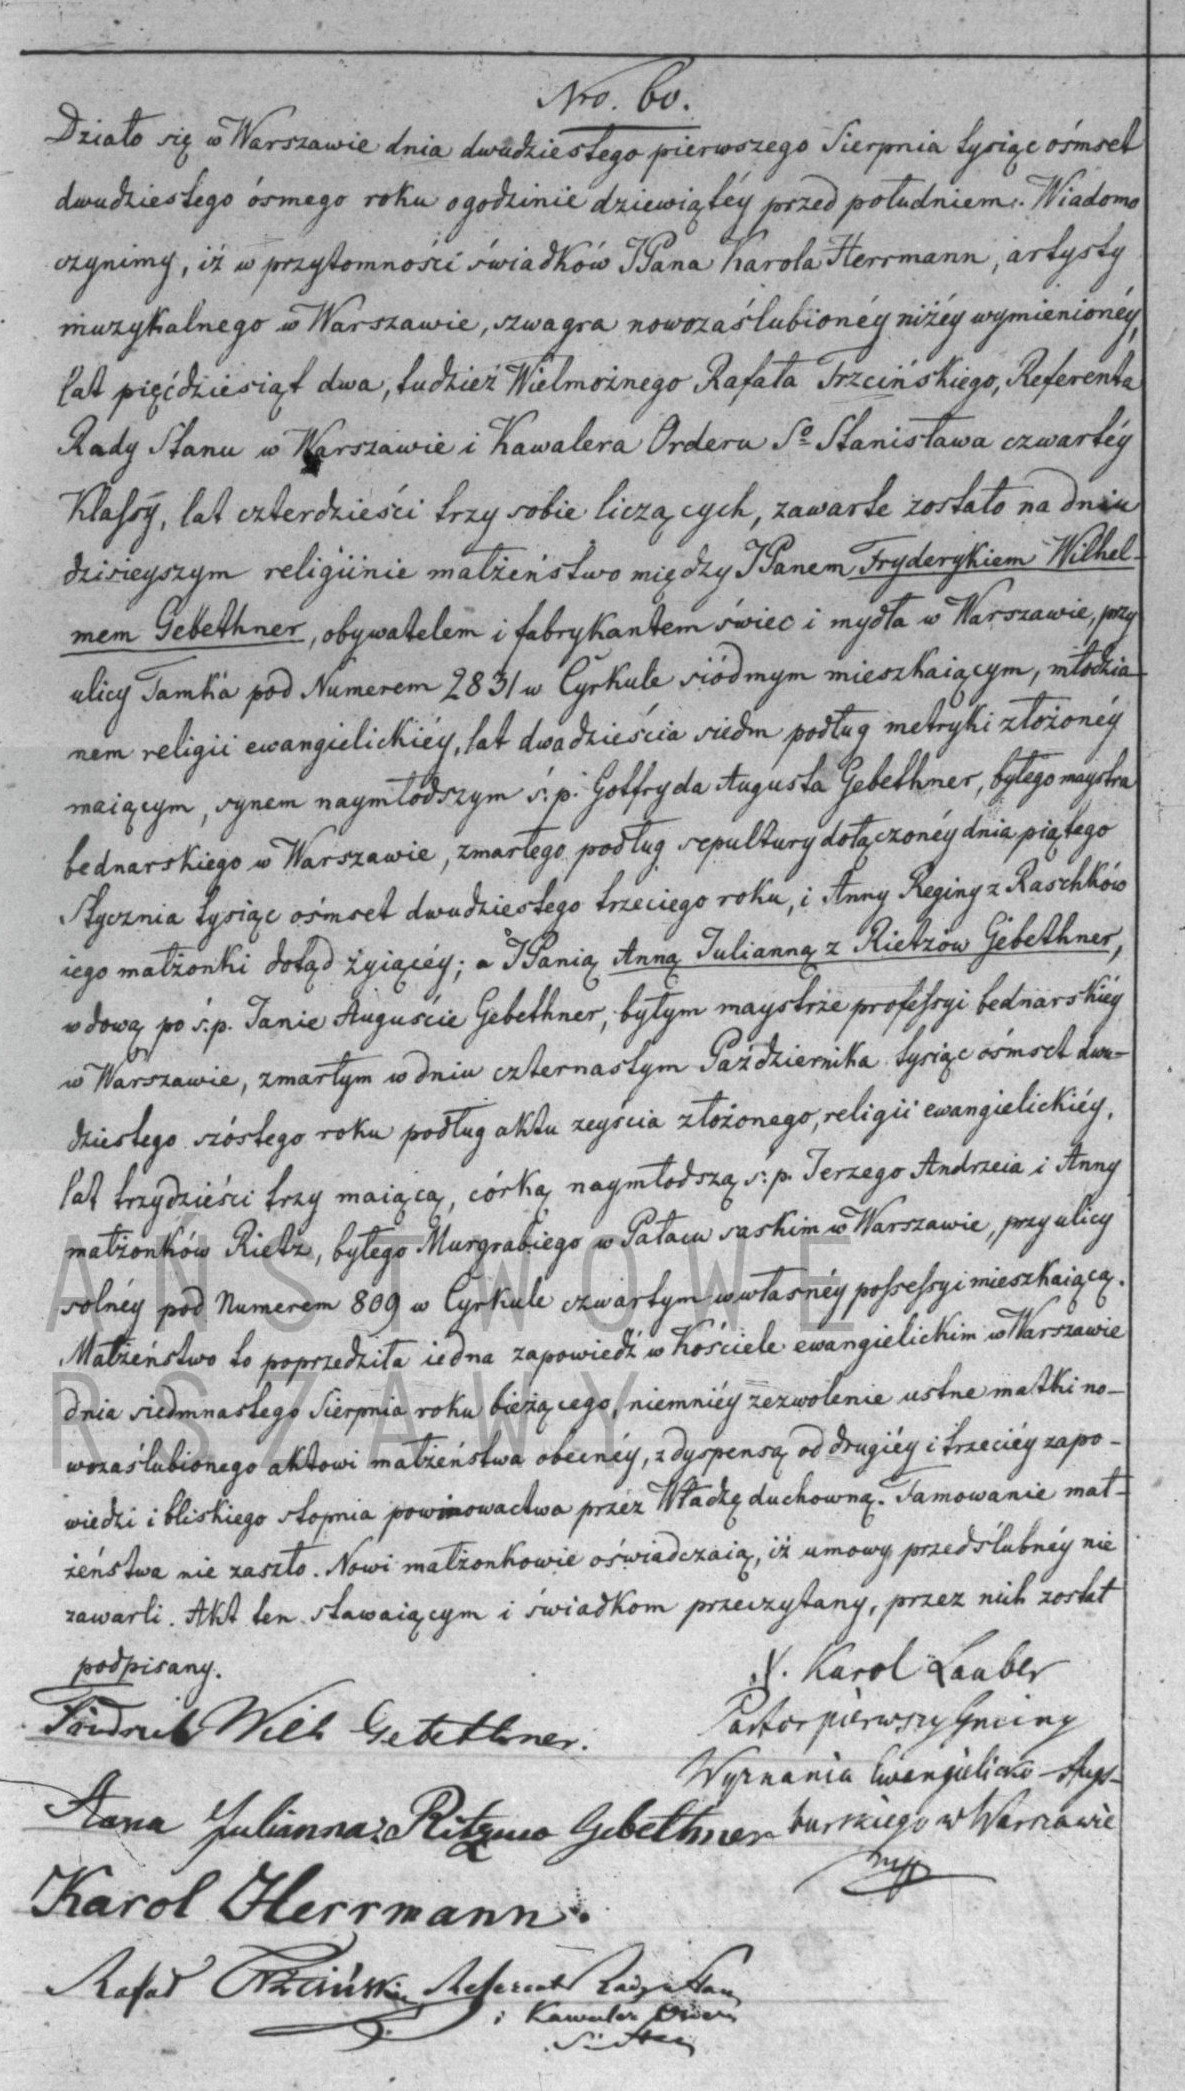 Nro. 60.
Działo się w Warszawie dnia dwudziestego pierwszego Sierpnia tysiąc ośmset
dwudziestego ósmego roku o godzinie dziewiątéy przed południem. Wiadomo
czynimy, iż w przytomności świadków JPana Karola Herrmann, artysty
muzykalnego w Warszawie, szwagra nowozaślubionéy niżéy wymienionéy,
lat pięćdziesiąt dwa, tudzież Wielmożnego Rafała Trzcińskiego, Referenta
Rady Stanu w Warszawie i Kawalera Orderu So Stanisława czwartéy
Klassy, lat czterdzieści trzy sobie liczących, zawarte zostało na dniu
dzisieyszym religiinie małżeństwo między JPanem Fryderykiem Wilhel-
mem Gebethner, obywatelem i fabrykantem świec i mydła w Warszawie, przy
ulicy Tamka pod Numerem 2831 w Cyrkule siódmym mieszkaiącym, młodzia-
nem religii ewangielickiéy, lat dwadzieścia siedm podług metryki złożonéy
maiącym, synem naymłodszym ś: p: Gottfryda Augusta Gebethner, byłego maystra
bednarskiego w Warszawie, zmarłego podług sepultury dołączonéy dnia piątego
Stycznia tysiąc ośmset dwudziestego trzeciego roku, i Anny Reginy z Raschków
iego małżonki dotąd żyiącéy; a JPanią Anną Julianną z Rietzów Gebethner,
wdową po ś: p. Janie Auguście Gebethner, byłym maystrze professyi bednarskiéy
w Warszawie, zmarłym w dniu czternastym Października tysiąc ośmset dwu-
dziestego szóstego roku podług aktu zeyścia złożonego, religii ewangielickiéy,
lat trzydzieści trzy maiącą, córką naymłodszą ś: p. Jerzego Andrzeia i Anny
małżonków Rietz, byłego Murgrabiego w Pałacu saskim w Warszawie, przy ulicy
solnéy pod Numerem 809 w Cyrkule czwartym w własnéy possessyi mieszkaiącą.
Małżeństwo to poprzedziła iedna zapowiedź w Kościele ewangielickim w Warszawie
dnia siedmnastego Sierpnia roku bieżącego, niemniéy zezwolenie ustne matki no-
wozaślubionego aktowi małżeństwa obecnéy, z dyspensą od drugiéy i trzeciéy zapo-
wiedzi i bliskiego stopnia powinowactwa przez Władzę duchowną. Tamowanie mał-
żeństwa nie zaszło. Nowi małżonkowie oświadczaią, iż umowy przedślubnéy nie
zawarli. Akt ten stawaiącym i świadkom przeczytany, przez nich został
podpisany.
Karol Lauber
Pastor pierwszy Gminy
Wyznania Ewangielicko-Augs-
burskiego w Warszawie
Friedrich Wilh Gebethner.
Anna Julianna z Ritzuw Gebethner
Karol Herrmann.
Rafał Trzciński Referent Rady Stan
i Kawaler Order
ANSTWOWE
RSZAWY